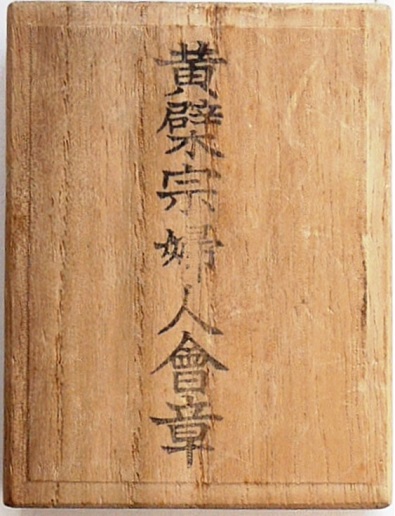 黄檗宗婦人會章